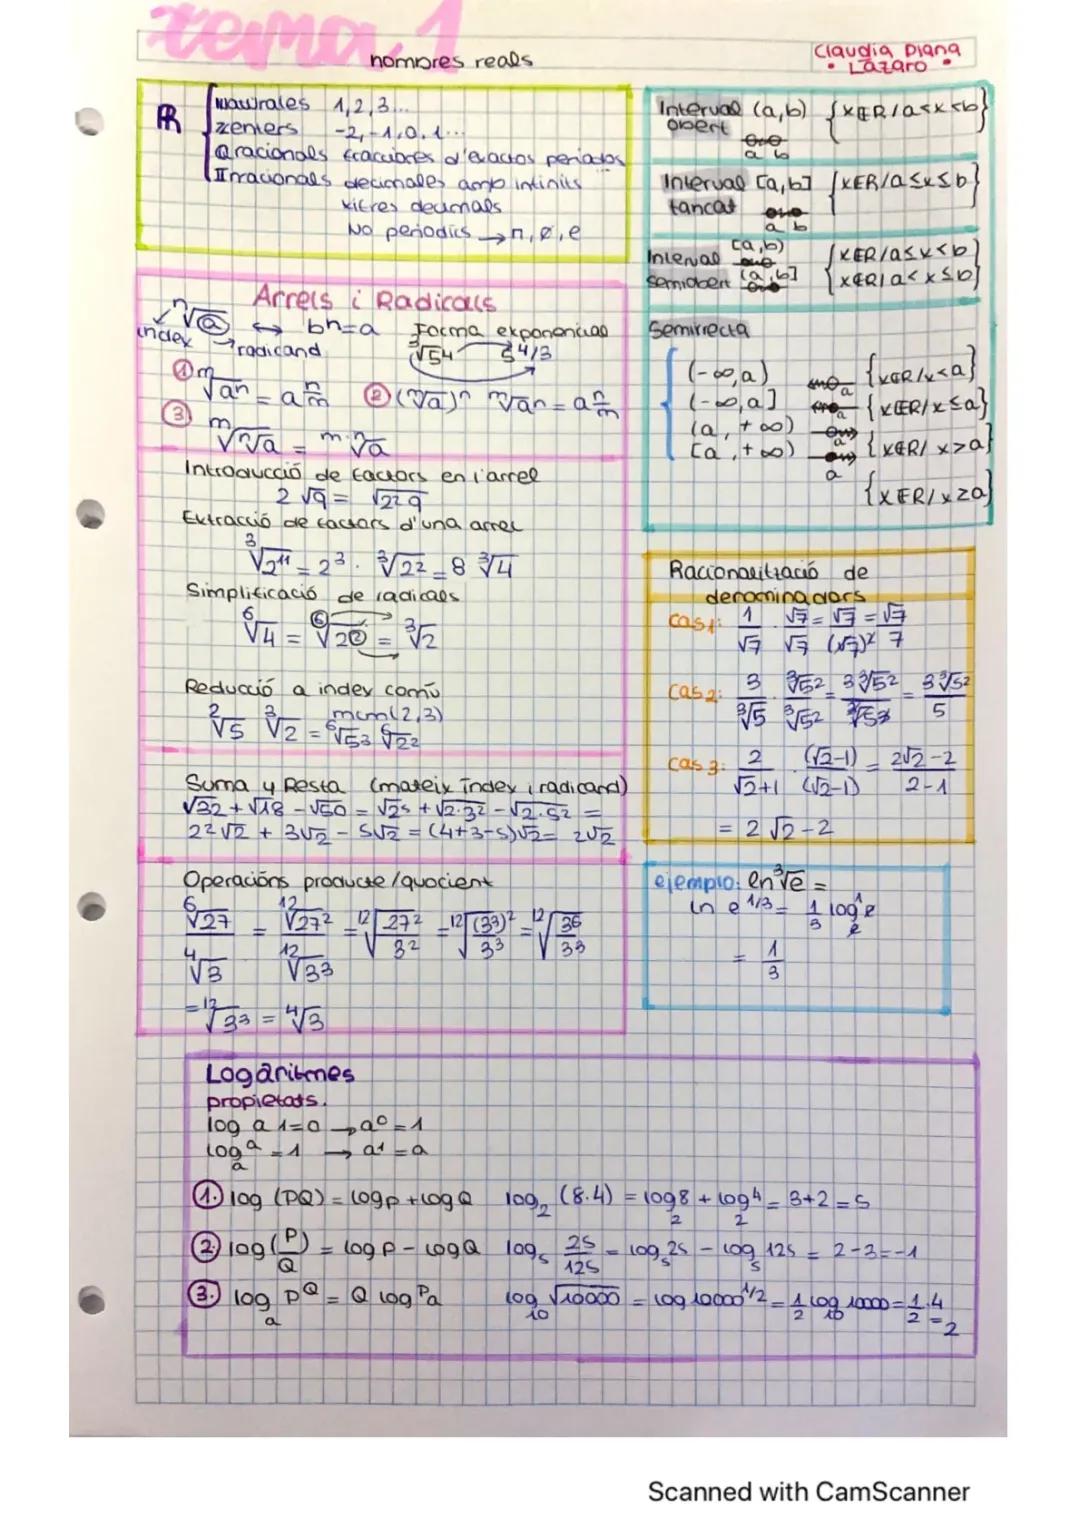 tema 1
nombres reals
Claudia Diana
• Lázaro •
ℝ
naturales 1,2,3...
zenters -2,-1,0,1...
Qracionals fraccions d'exactos periodos
IIrracionals decimales amb infinits
xifres decimals
No periodics → π, ø, e
Interval (a,b) {xER/a<x<b}
obert
a b
Interval [a,b] {xER/a≤x≤b}
tancat
a b
Interval [a,b) {xER/a≤x<b}
semiobert (a,b] {xER/a<x≤b}
Semirrecta
(-∞,a) a {xER/x<a}
(-∞,a] a {xER/x≤a}
(a,+∞) a {xER/x>a}
[a,+∞) a {xER/x≥a}
Arrels i Radicals
ⁿ√a ↔ bn=a Forma exponencial
index radicand ³√54 5 4/3
① ᵐ√aⁿ = a n/m ② (ᵐ√a)ⁿ ᵐ√aⁿ = a n/m
③ ᵐ√ⁿ√a = ᵐ·ⁿ√a
Introducció de factors en l'arrel
2 √9 = √2²9
Extracció de factors d'una arrel
³√2¹¹ = 2³ · ³√2² = 8 ³√4
Simplificació de radicals
⁶√4 = ⁶√2② = ³√2
Reducció a index comú
²√5 ³√2 = mcm(2,3) ⁶√5³ ⁶√2²
Suma y Resta (mateix índex i radicand)
√32 + √18 - √50 = √2⁵ + √2·3² - √2·5² =
2²√2 + 3√2 - 5√2 = (4+3-5)√2 = 2√2
Operacións producte/quocient
⁶√27 / ⁴√3 = ¹²√27² / ¹²√3³ = ¹²√27²/3² = ¹²√(3³)²/3³ = ¹²√3⁶/3³
= ¹²√3³ = ⁴√3
Racionalització de
denominadors
cas 1: 1/√7 · √7/√7 = √7/(√7)² = √7/7
cas 2: 3/³√5 · ³√5²/³√5² = 3³√5²/³√5³ = 3³√5²/5
cas 3: 2/√2+1 · (√2-1)/(√2-1) = 2√2-2/2-1
= 2√2-2
ejemplo: ln ³√e =
ln e 1/3 = 1/3 log e e
= 1/3
Logaritmes
propietats.
log a 1=0 → a⁰=1
log a a = 1 → a¹ = a
①. log (PQ) = log P + log Q log₂ (8·4) = log₂ 8 + log₂ 4 = 3+2 = 5
② log (P/Q) = log P - log Q log₅ 25/125 = log₅ 25 - log₅ 125 = 2-3=-1
③. log a P^Q = Q log P a log 10 √10000 = log 10000 1/2 = 1/2 log 10 10000 = 1/2 · 4 = 2
Scanned with CamScanner